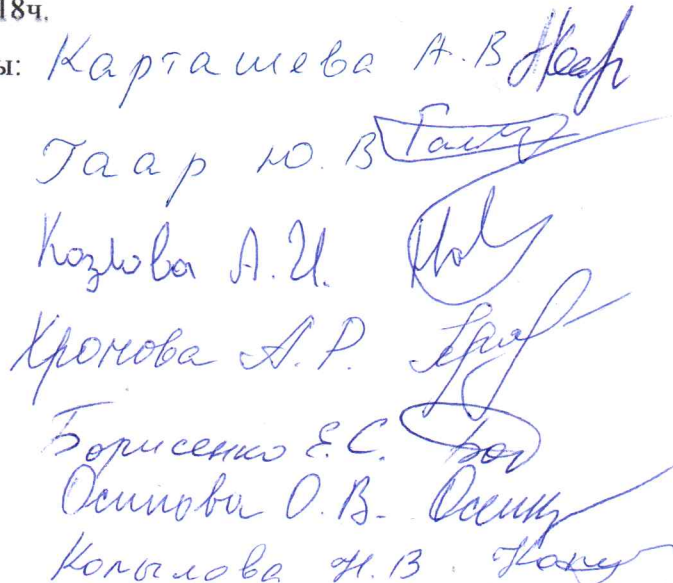 18ч.
ы: Карташева А.В
Гаар Ю.В
Козлова А.И.
Хромова А.Р.
Борисенко Е.С.
Осипова О.В.
Копылова Н.В.